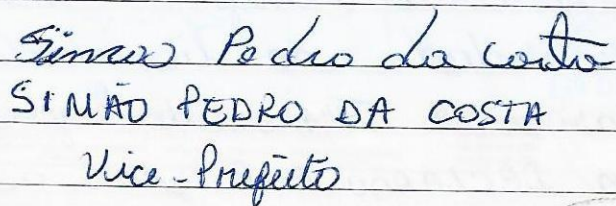 Simao Pedro da Costa
SIMÃO PEDRO DA COSTA
Vice-Prefeito